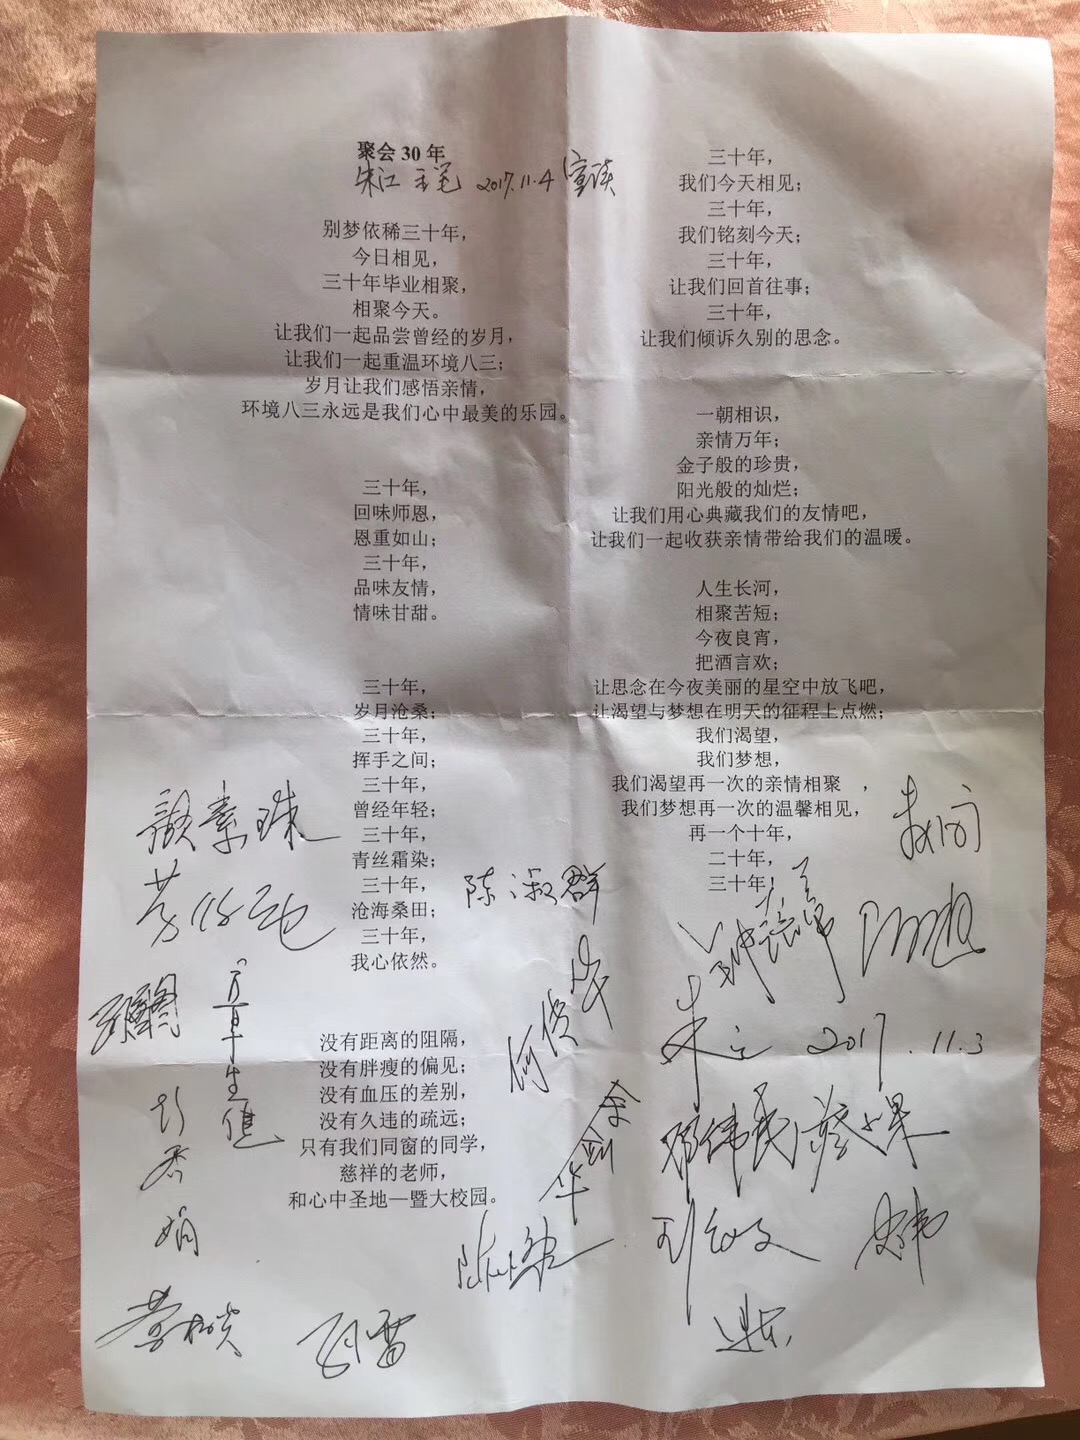 聚会 30 年
朱江 主笔 2017.11.4 宣读
别梦依稀三十年，
今日相见，
三十年毕业相聚，
相聚今天。
让我们一起品尝曾经的岁月，
让我们一起重温环境八三；
岁月让我们感悟亲情，
环境八三永远是我们心中最美的乐园。
三十年，
回味师恩，
恩重如山；
三十年，
品味友情，
情味甘甜。
三十年，
岁月沧桑；
三十年，
挥手之间；
三十年，
曾经年轻；
三十年，
青丝霜染；
三十年，
沧海桑田；
三十年，
我心依然。
没有距离的阻隔，
没有胖瘦的偏见；
没有血压的差别，
没有久违的疏远；
只有我们同窗的同学，
慈祥的老师，
和心中圣地—暨大校园。
三十年，
我们今天相见；
三十年，
我们铭刻今天；
三十年，
让我们回首往事；
三十年，
让我们倾诉久别的思念。
一朝相识，
亲情万年；
金子般的珍贵，
阳光般的灿烂；
让我们用心典藏我们的友情吧，
让我们一起收获亲情带给我们的温暖。
人生长河，
相聚苦短；
今夜良宵，
把酒言欢；
让思念在今夜美丽的星空中放飞吧，
让渴望与梦想在明天的征程上点燃；
我们渴望，
我们梦想，
我们渴望再一次的亲情相聚 ，
我们梦想再一次的温馨相见，
再一个十年，
二十年，
三十年！
颜素珠
陈淑群
朱江 2017.11.3
余剑华
邓伟民